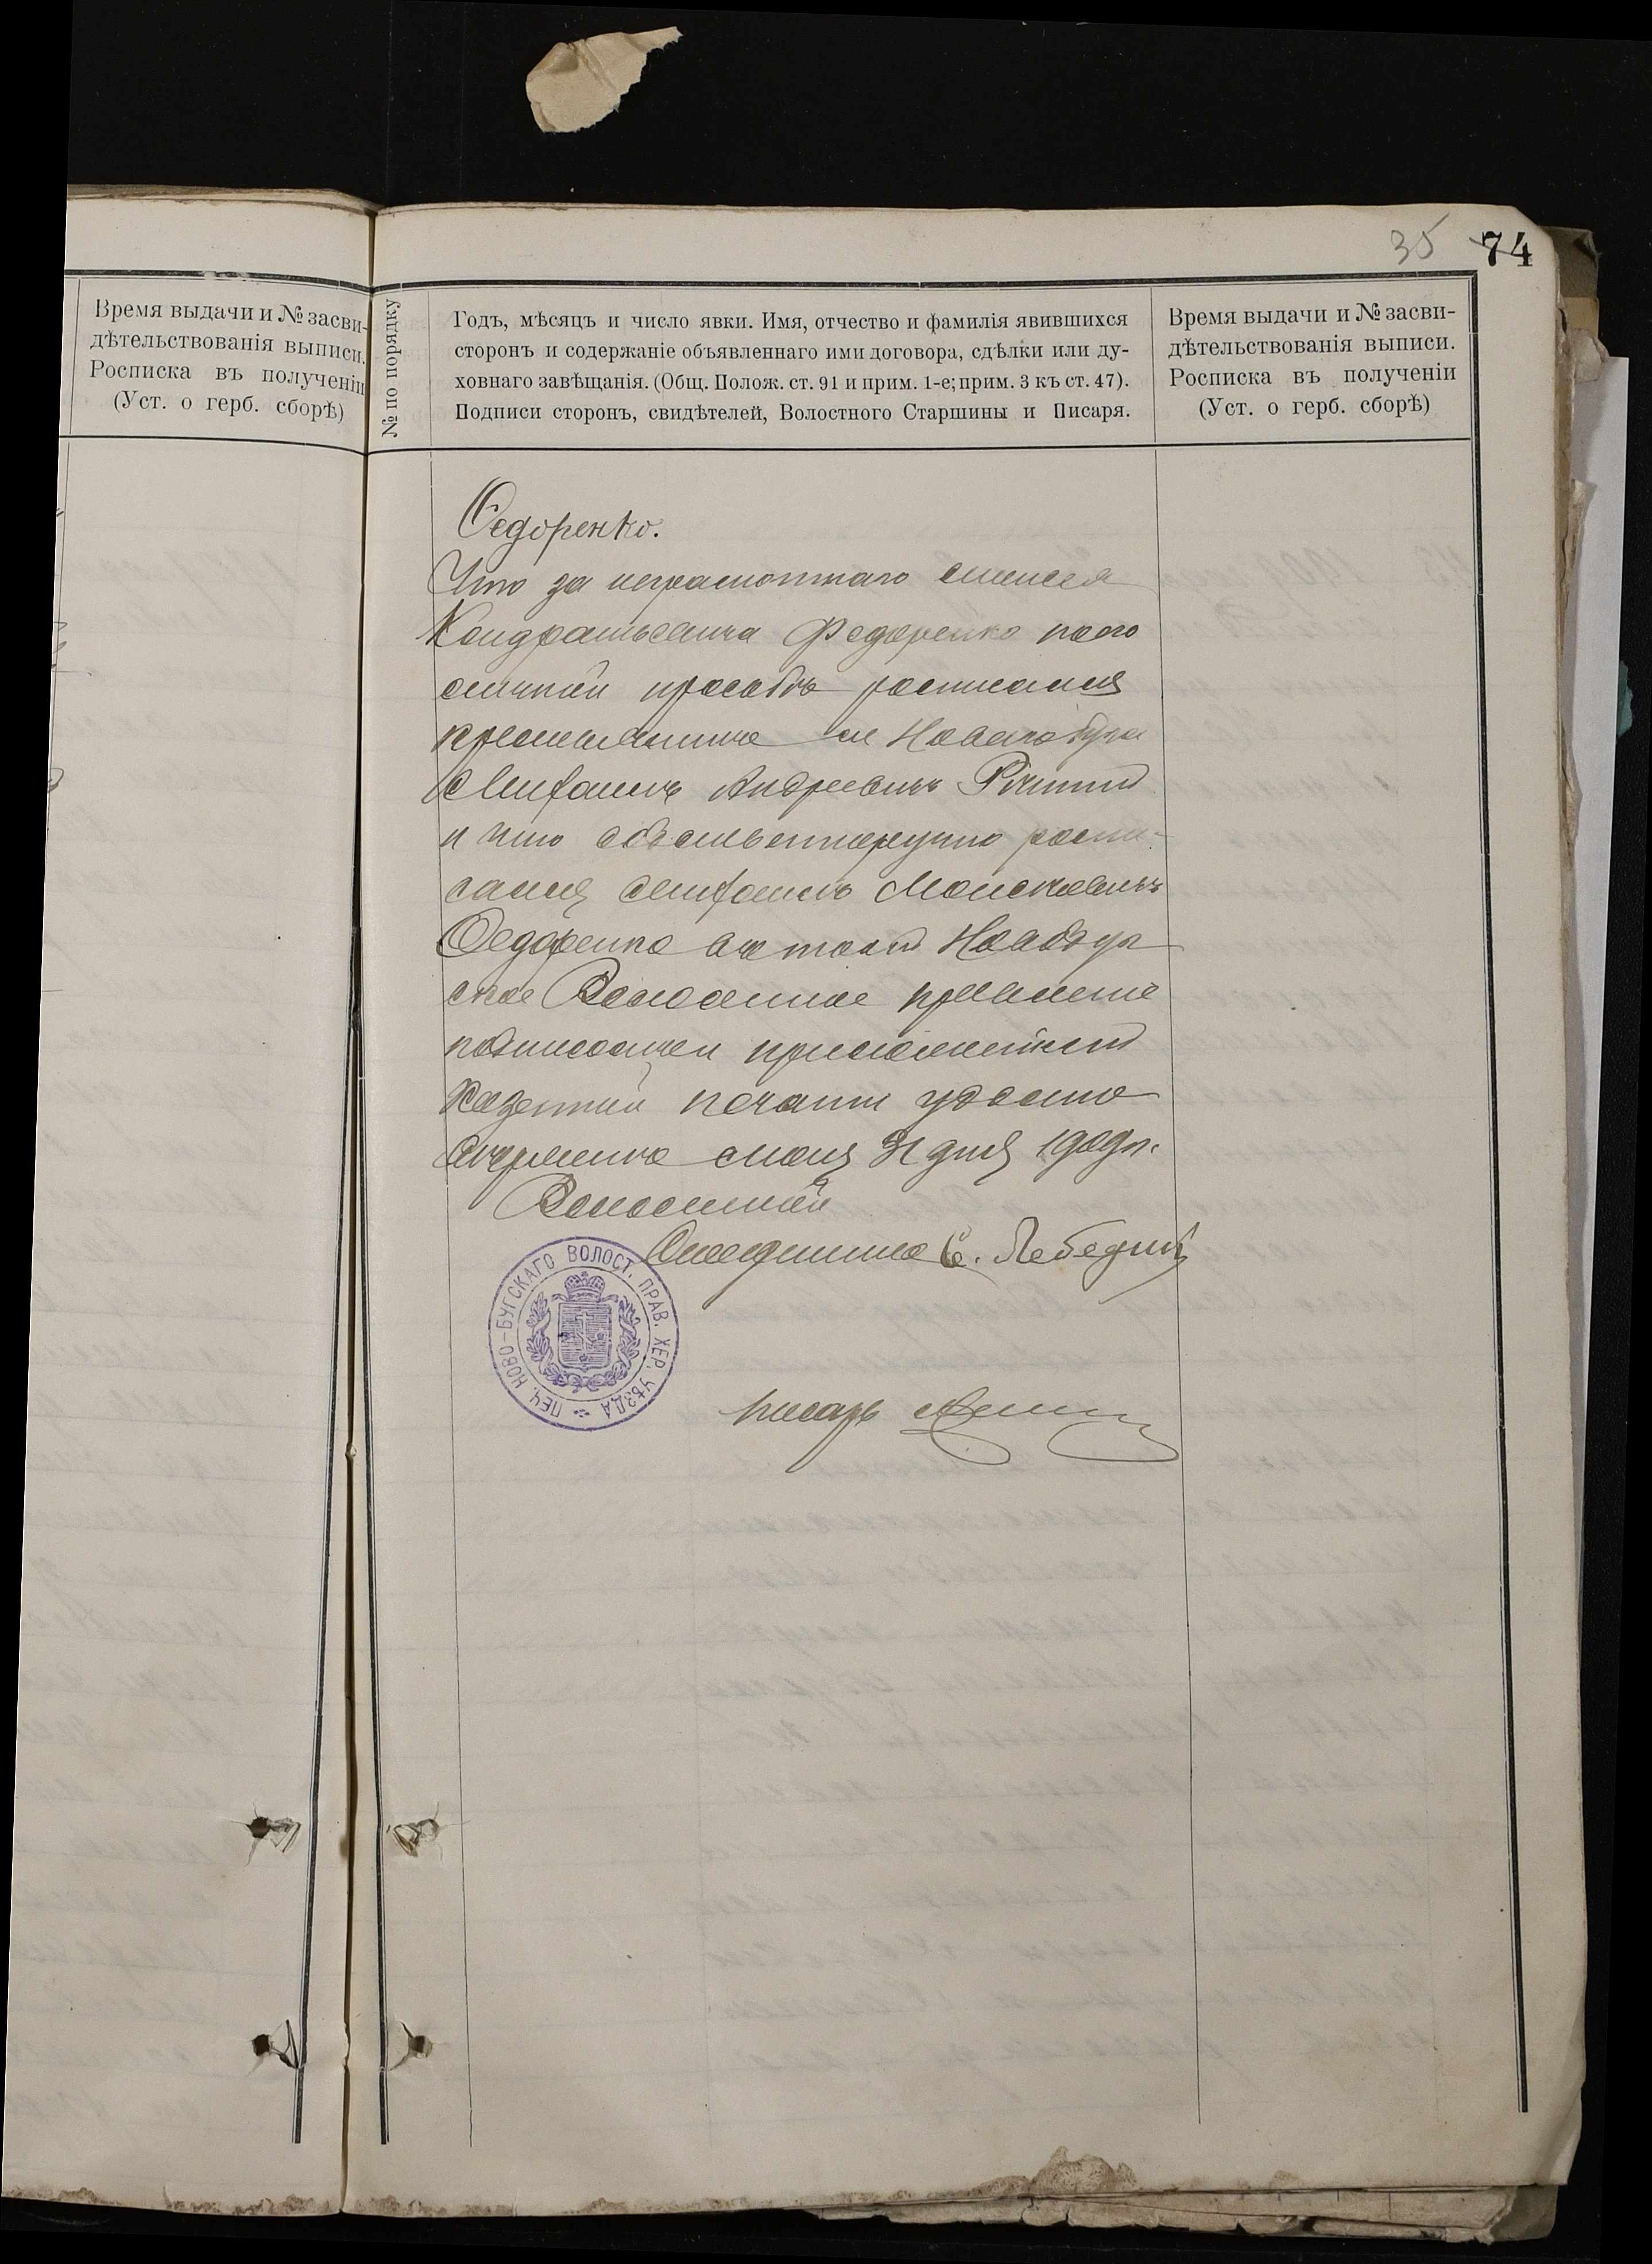 35 74
Время выдачи и № засви-
дѣтельствованія выписи.
Росписка въ полученіи
(Уст. о герб. сборѣ)
№ по порядку
Годъ, мѣсяцъ и число явки. Имя, отчество и фамилія явившихся
сторонъ и содержаніе объявленнаго ими договора, сдѣлки или ду-
ховнаго завѣщанія. (Общ. Полож. ст. 91 и прим. 1-е; прим. 3 къ ст. 47).
Подписи сторонъ, свидѣтелей, Волостного Старшины и Писаря.
Время выдачи и № засви-
дѣтельствованія выписи.
Росписка въ полученіи
(Уст. о герб. сборѣ)
Федоренко.
Что за неграмотнаго
Кондратьевича Федоренко по его
личной просьбѣ росписался
крестьянинъ Новаго буга
Андреевичъ
и что собственноручно роспи-
сался Моисеевичъ
Федоренко въ томъ Новобуг-
ское Волостное правленіе
подписомъ приложеніемъ
казенной печати удосто
вѣряетъ 31 дня 190
Волостной
Старшина С. Лебедий
ПЕЧ. НОВО-БУГСКАГО ВОЛОСТ. ПРАВ. ХЕР. УѢЗДА
писарь